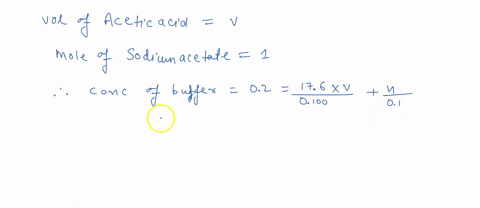 vol of Acetic acid = v
mole of Sodium acetate = 1
∴ conc of buffer = 0.2 = 17.6 x v / 0.100 + n / 0.1